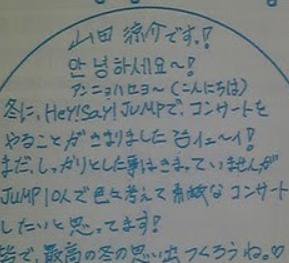 山田涼介です。!
안녕하세요〜!
アンニョハセヨ〜(こんにちは)
冬に、Hey!Say!JUMPで、コンサートを
やることがきまりました イェ〜イ!
まだ、しっかりとした事はきまっていませんが
JUMP10人で色々考えて素敵なコンサート
したいと思ってます!
皆で、最高の冬の思い出つくろうね。♡